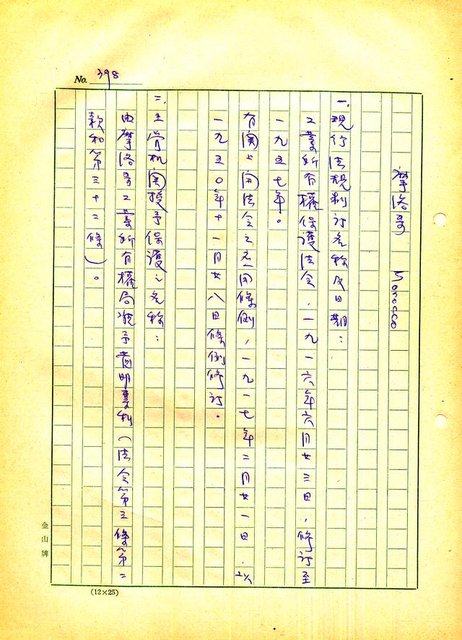 No. 398
摩洛哥 5030000
一、現行法規制訂名称及日期：
工業所有權保護法令，一九一六年六月廿三日，修訂至
一九五七年。
有関上開法令之之一間條例，一九一七年二月廿一日，以
一九五〇年十一月廿八日條例修訂。
二、主管机関授予保護之名称：
由摩洛哥工業所有權局頒予发明專利（法令第三條第二
款和第三十二條）。
金山牌
(12×25)